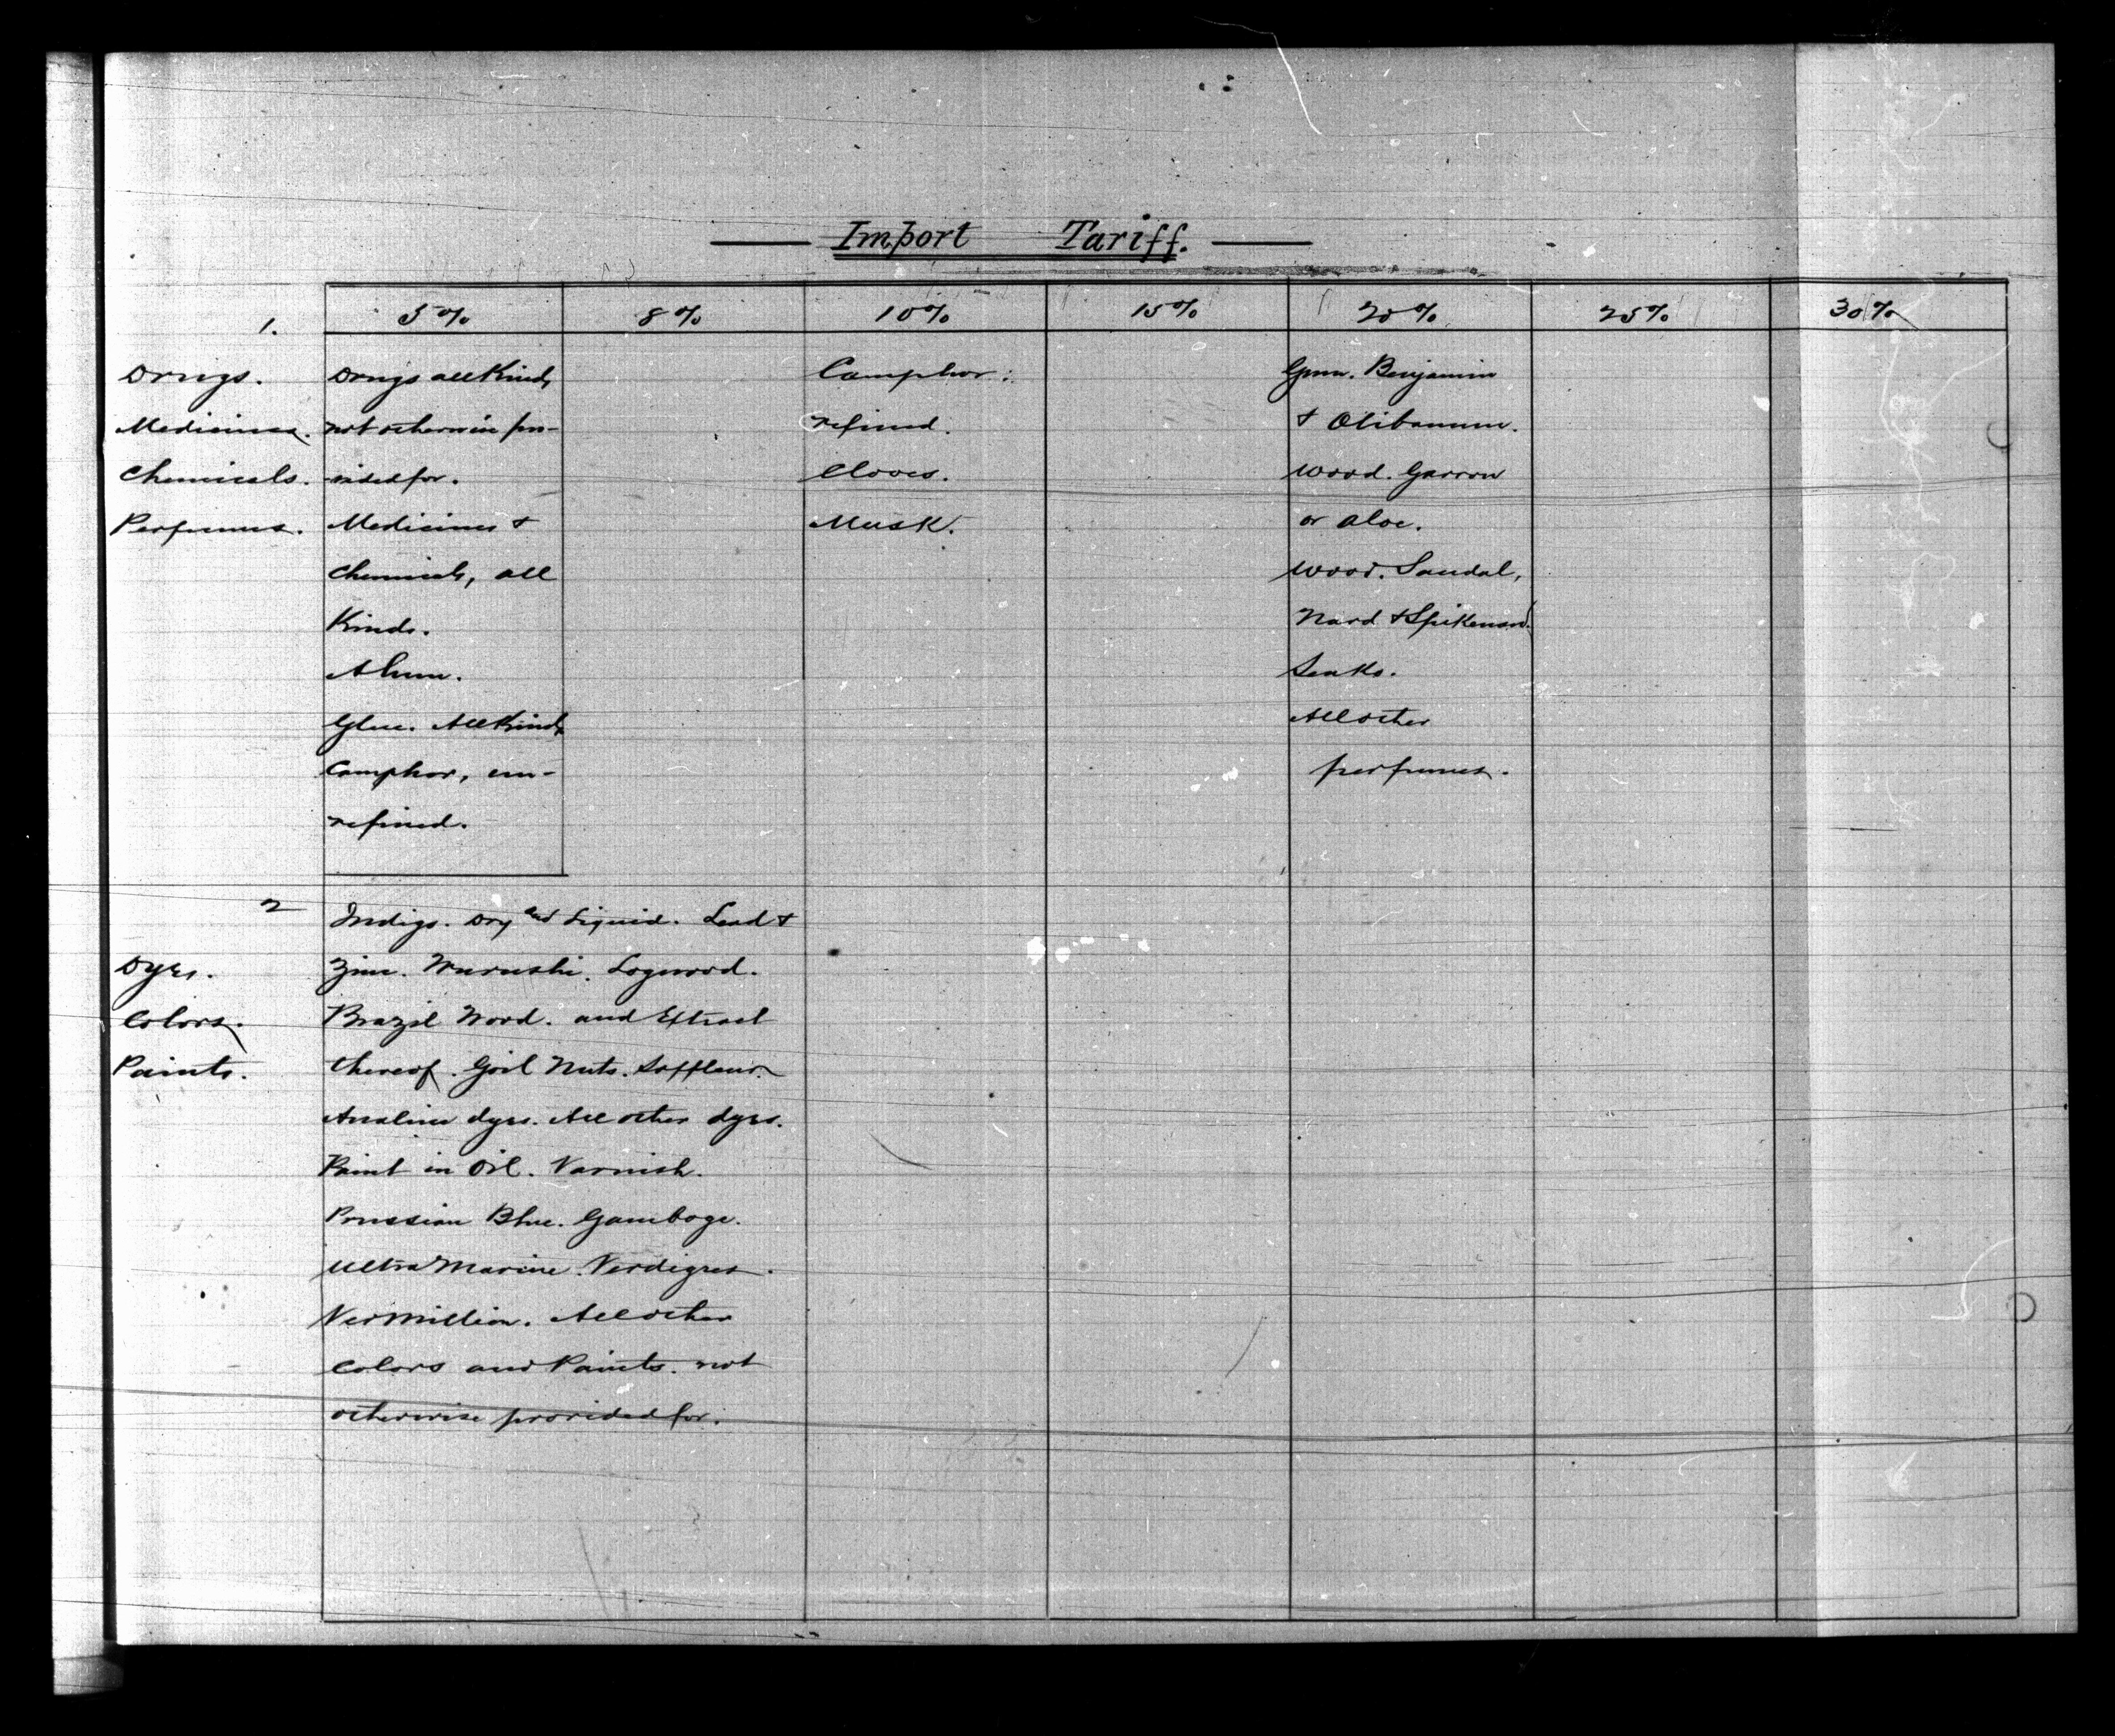 Import Tariff.
5% 8% 10% 15% 20% 25% 30%
1.
Drugs.
Medicines.
Chemicals.
Perfumes.
Drugs all Kinds
not otherwise pro-
vided for.
Medicines &
Chemicals, all
Kinds.
Alum.
Glue. All Kinds
Camphor, un-
refined.
Camphor:
refined.
Cloves.
Musk.
Gum. Benjamin
& Olibanum.
Wood. Garrow
or aloe.
Wood. Sandal,
Nard & Spikenard.
All other
perfumes.
2
Dyes.
Colors.
Paints.
Indigo. Dry and Liquid. Lead &
Zinc. Wurushi. Logwood.
Brazil Wood. and Extract
thereof. Goil Nuts. Safflour.
Analine dyes. All other dyes.
Paint in Oil. Varnish.
Prussian Blue. Gamboge.
Ultra Marine. Verdigres.
Vermillion. All other
Colors and Paints. not
otherwise provided for.